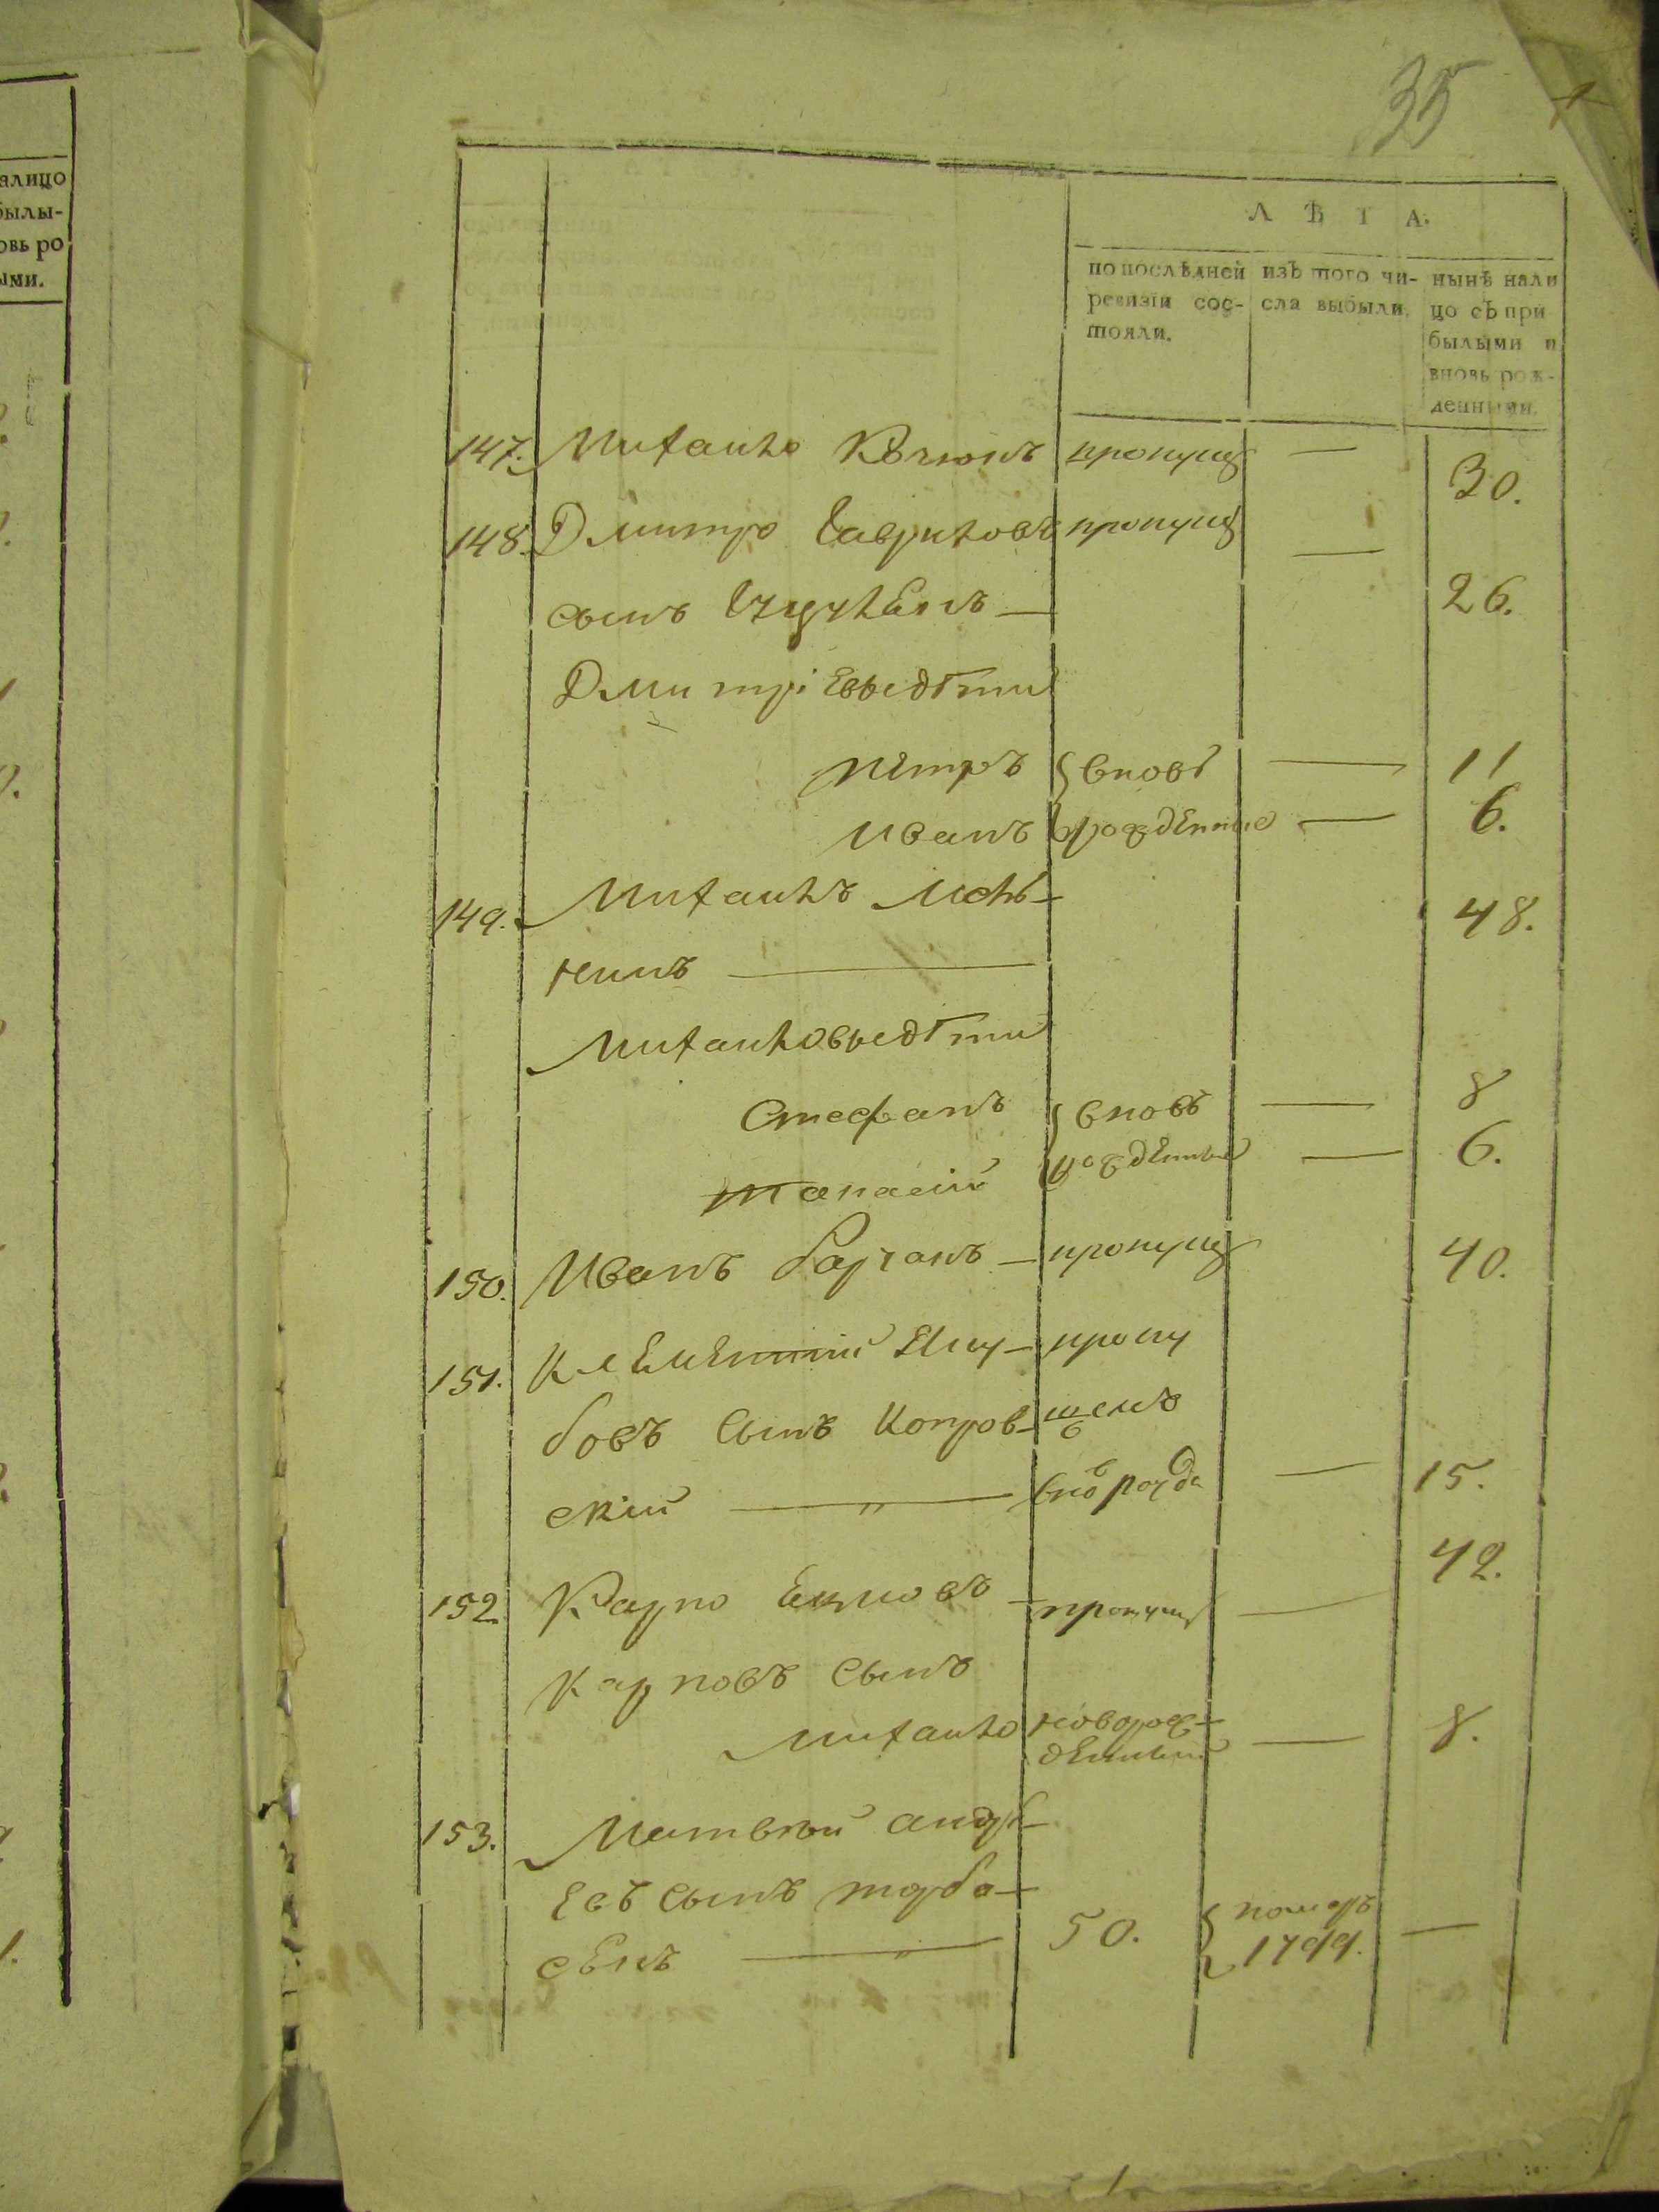 35
алицо
былы-
овь ро
ыми.
Л Ѣ Т А.
по послѣдней ревизіи сос- тояли.
изъ того чи- сла выбыли.
нынѣ нали цо съ при былыми и вновь рож- денными.
147. Михайло пропущ — 30.
148. Дмитро Гавриловъ пропущ —
сынъ — 26.
Дмитріевы дѣти
Петръ вновѣ — 11
Иванъ рожденные — 6.
149. Михайлъ 48.
нинъ —
Михайловы дѣти
Стефанъ вновѣ — 8
Танасій рожденные — 6.
150. Иванъ — пропущ 40.
151. Климентій пропу
бовъ сынъ Копров- щенъ
скій — " — — 15.
42.
152 Карпо — пропущ —
Карповъ сынъ
Михайло новорож- денный — 8.
153. Матвѣй андрѣ-
евъ сынъ торба-
сенъ — " — 50. померъ 1799. —